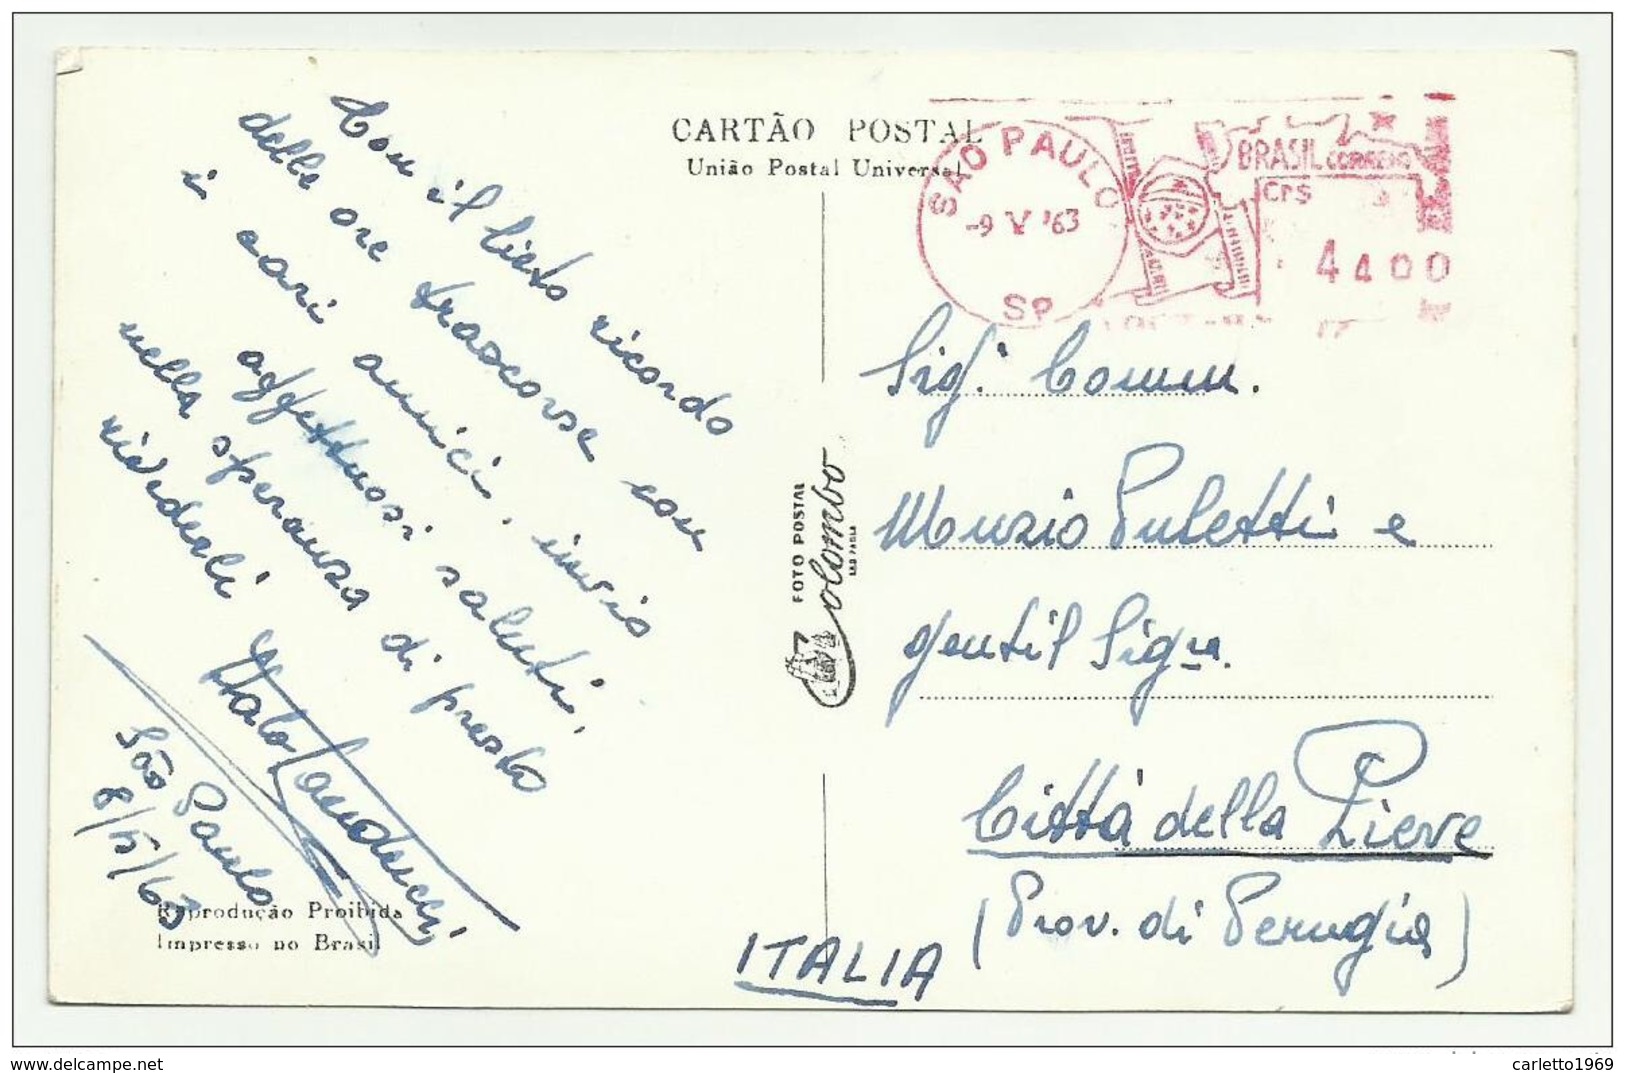 CARTÃO POSTAL
União Postal Universal
SÃO PAULO
-9 V '63
SP
BRASIL CORREIO
Crs
4400
Con il lieto ricordo
delle ore trascorse con
i cari amici, invio
affettuosi saluti,
nella speranza di presto
rivederli
Italo
São Paulo
8/5/63
Reprodução Proibida
Impresso no Brasil
FOTO POSTAL
Colombo
SÃO PAULO
Sig. Comm.
Muzio Puletti e
gentil Sigra.
Città della Pieve
(Prov. di Perugia)
ITALIA
delcampe.net
carletto1969